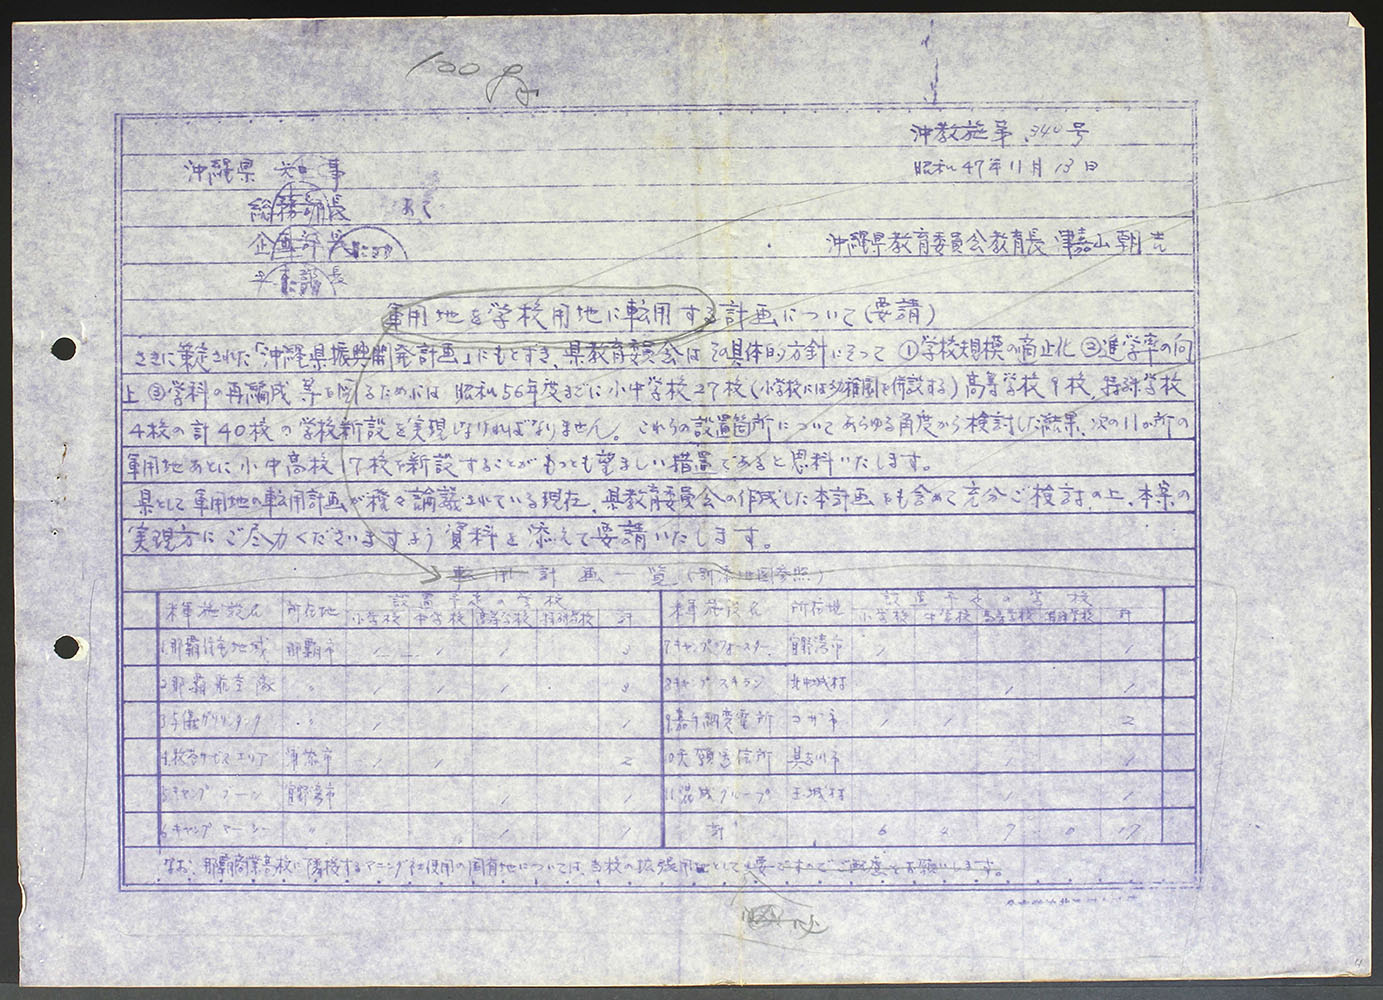 100部
沖教施第340号
昭和47年11月13日
沖縄県知事
総務部長 あて
企画部長
沖縄県教育委員会教育長 津嘉山朝吉
軍用地を学校用地に転用する計画について(要請)
さきに策定された「沖縄県振興開発計画」にもとずき、県教育委員会はその具体的方針にそって ①学校規模の適正化 ②進学率の向
上 ③学科の再編成 等を図るためには 昭和56年度までに小中学校27校(小学校には幼稚園を併設する)高等学校9校、特殊学校
4校の計40校の学校新設を実現しなければなりません。これらの設置箇所についてあらゆる角度から検討した結果、次の11か所の
軍用地あとに小中高校17校を新設することがもっとも望ましい措置であると思料いたします。
県として軍用地の転用計画が種々論議されている現在、県教育委員会の作成した本計画をも含めて充分ご検討の上、本案の
実現方にご尽力くださいますよう資料を添えて要請いたします。
転用計画一覧(別添地図参照)
米軍施設名 所在地 設置予定の学校 米軍施設名 所在地 設置予定の学校
小学校 中学校 高等学校 特殊学校 計 小学校 中学校 高等学校 特殊学校 計
1那覇住宅地域 那覇市 1 1 1 3 7キャンプフォースター 宜野湾市 1 1
2那覇航空隊 〃 1 1 1 3 8キャンプスキラン 北中城村 1 1
3与儀ガソリンタンク 〃 1 1 9嘉手納変電所 コザ市 1 1 2
4牧港サービスエリア 浦添市 1 1 2 10天願通信所 具志川市 1 1
5キャンプブーン 宜野湾市 1 1 11混成グループ 玉城村 1 1
6キャンプマーシー 〃 1 1 計 6 4 7 0 17
なお、那覇商業高校に隣接するアニング社使用の国有地については、当校の拡張用地として必要ですのでご配慮をお願いします。